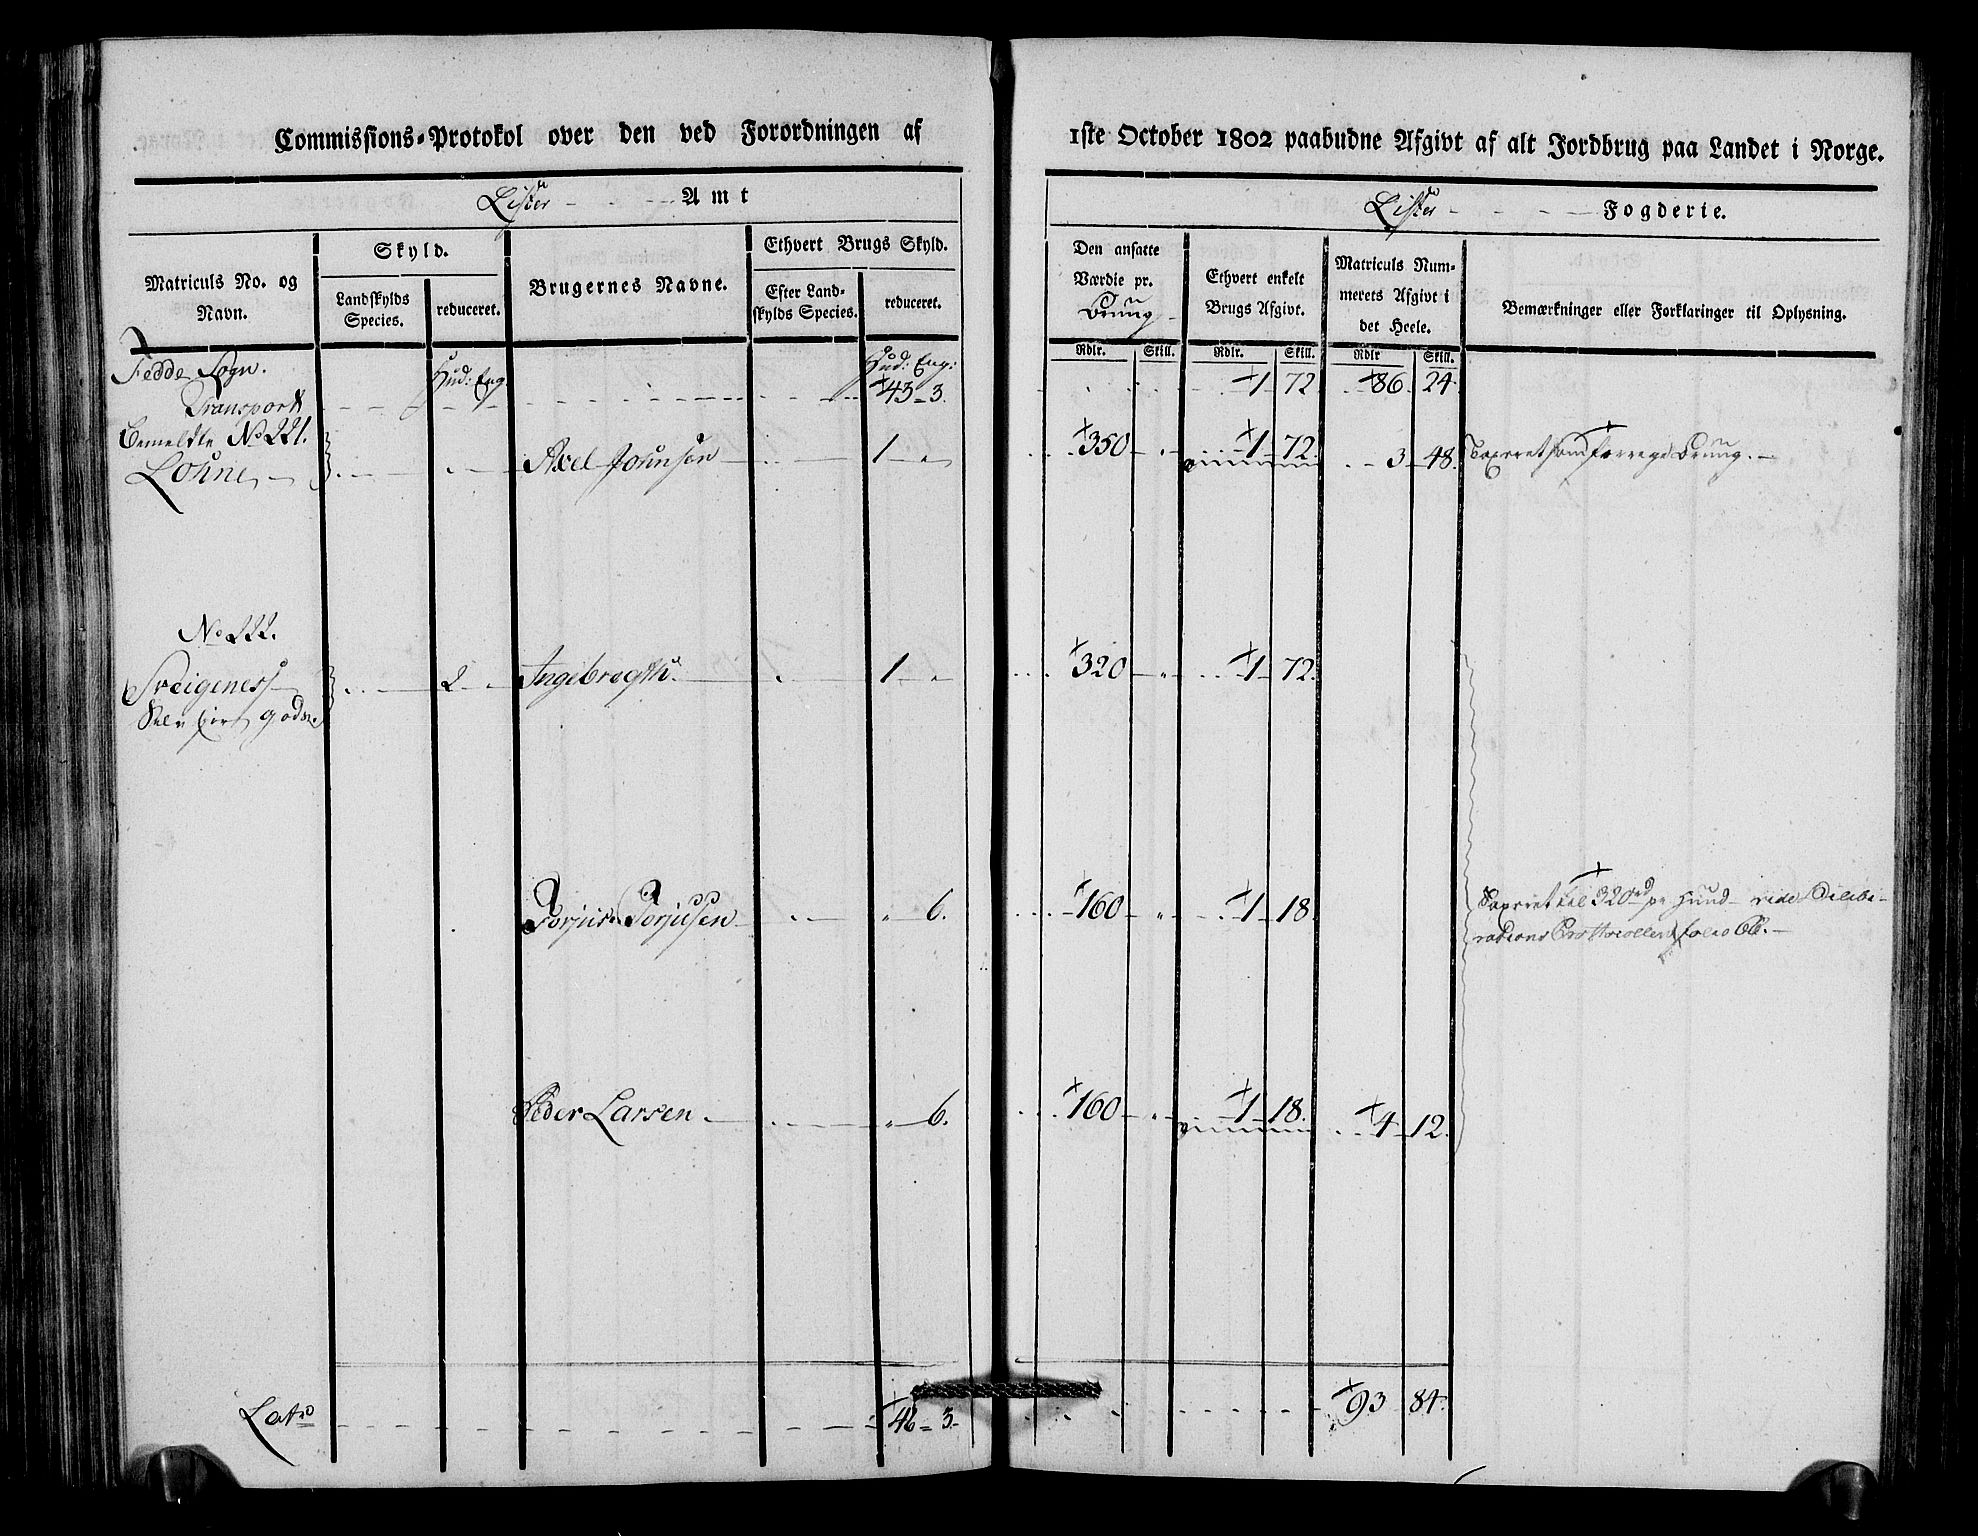 Commissions-Protokol over den ved Forordningen af
Lister Amt
Matriculs No. og Navn.
Skyld.
Landskylds Species.
reduceret.
Brugernes Navne.
Ethvert Brugs Skyld.
Efter Landskylds Species.
reduceret.
Fedde Sogn. Hud: Eng Hud: Eng:
Transport 43 - 3.
Bemeldte No 221.
Lohne Axel Johnsen 1 "
No 222.
2 Ingebregth 1 "
Torjus Torjusen " 6.
Peder Larsen " 6.
Lats 46 - 3.
1ste October 1802 paabudne Afgivt af alt Jordbrug paa Landet i Norge.
Lister Fogderie.
Den ansatte Værdie pr.
Ethvert enkelt Brugs Afgivt.
Matriculs Nummerets Afgivt i det Heele.
Bemærkninger eller Forklaringer til Oplysning.
Rdlr. Skill. Rdlr. Skill. Rdlr Skill.
1 72 86 24
350 " 1 72 3 48 Taxeret som forrige
320 " 1 72
160 " 1 18 Taxeret til 320rd pr Hud vide Delibe-
rations Protocollens folio 66.
160 " 1 18 4 12
93 84